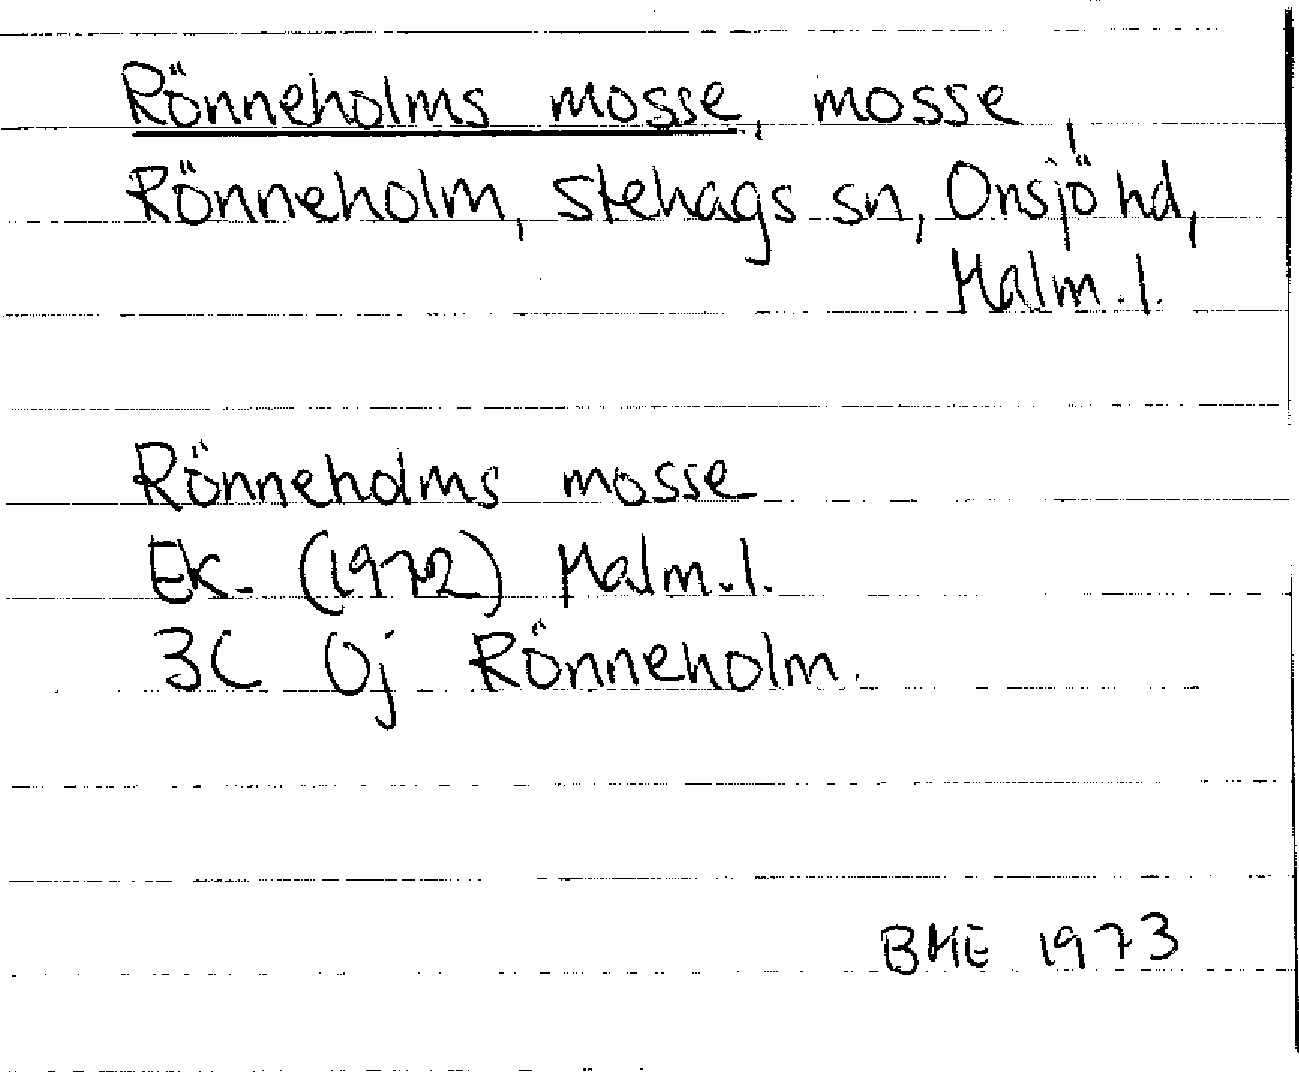 Rönneholms mosse, mosse,
Rönneholm, Stehags sn, Onsjö hd,
Malm.l.
Rönneholms mosse
Ek. (1972) Malm.l.
3C 0j Rönneholm.
BME 1973